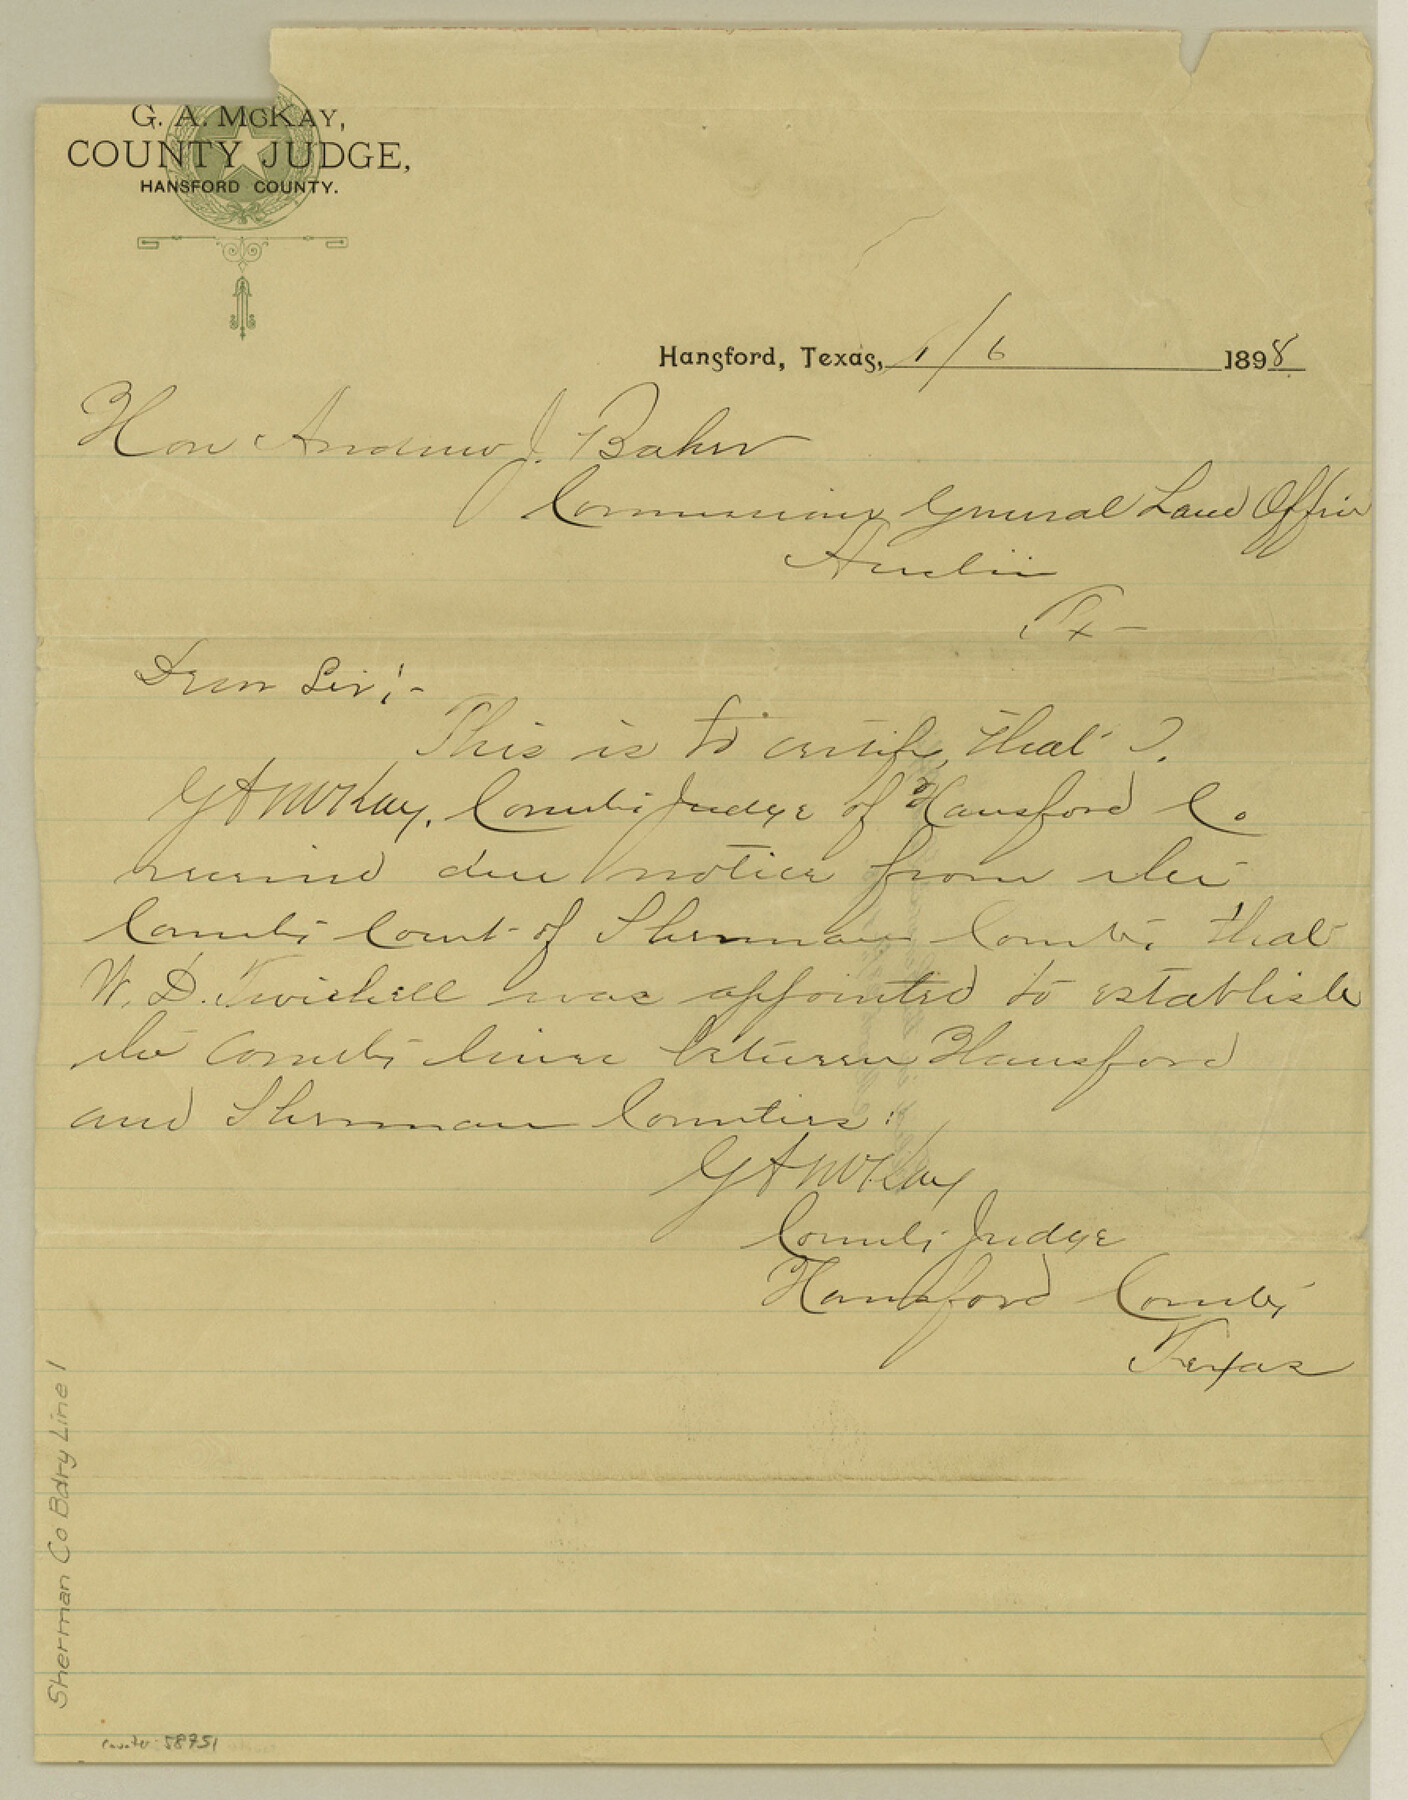 G. A. McKAY,
COUNTY JUDGE,
HANSFORD COUNTY.
Hansford, Texas, 1/6 1898
Hon Andrew J. Baker
Commissioner General Land Office
Austin
Tx-
Dear Sir:-
This is to certify, that I.
G A McKay, County Judge of Hansford Co
received due notice from the
County Court of Sherman County that
W. D. Twichell was appointed to establish
the County lines between Hansford
and Sherman Counties:
G A McKay
County Judge
Hansford County
Texas
Sherman Co Bdry Line 1
counter 58951